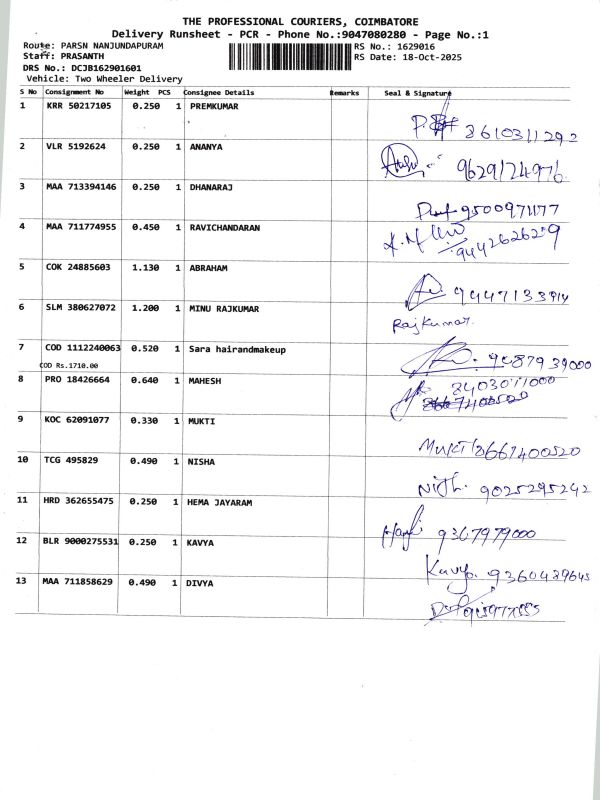 THE PROFESSIONAL COURIERS, COIMBATORE
Delivery Runsheet - PCR - Phone No.:9047080280 - Page No.:1
Route: PARSN NANJUNDAPURAM RS No.: 1629016
Staff: PRASANTH RS Date: 18-Oct-2025
DRS No.: DCJB162901601
Vehicle: Two Wheeler Delivery
S No Consignment No Weight PCS Consignee Details Remarks Seal & Signature
1 KRR 50217105 0.250 1 PREMKUMAR
8610311292
2 VLR 5192624 0.250 1 ANANYA
9629124976
3 MAA 713394146 0.250 1 DHANARAJ
9500971177
4 MAA 711774955 0.450 1 RAVICHANDARAN
9442626259
5 COK 24885603 1.130 1 ABRAHAM
6 SLM 380627072 1.200 1 MINU RAJKUMAR
Rajkumar.
7 COD 1112240063 0.520 1 Sara hairandmakeup
9087939000
COD Rs.1710.00
8 PRO 18426664 0.640 1 MAHESH
8403011000
9 KOC 62091077 0.330 1 MUKTI
Mukti 8667400520
10 TCG 495829 0.490 1 NISHA
9025295242
11 HRD 362655475 0.250 1 HEMA JAYARAM
9367979000
12 BLR 9000275531 0.250 1 KAVYA
Kavya. 9360489645
13 MAA 711858629 0.490 1 DIVYA